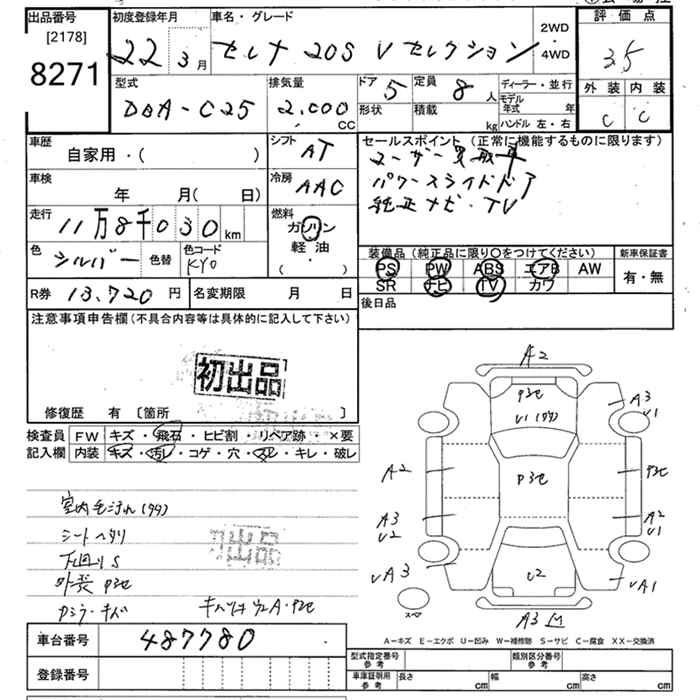 出品番号 初度登録年月 車名・グレード 評価点
[2178] 22年 3月 セレナ 20S Vセレクション 2WD 4WD 3.5
8271
型式 排気量 ドア 5 定員 8人 ディーラー・並行 外装 内装
DBA-C25 2,000CC 形状 積載 kg モデル年式 年 ハンドル 左・右 C C
車歴 シフト セールスポイント(正常に機能するものに限ります)
自家用・( ) AT ユーザー買取車
車検 冷房 パワースライドドア
年 月(日) AAC 純正ナビ・TV
走行 燃料
11万8千030km ガソリン
色 シルバー 色替 色コード KY0 軽油 ( ・ )
装備品(純正品に限り○をつけてください) 新車保証書
PS PW ABS エアB AW 有・無
SR ナビ TV カワ
R券 13,720円 名変期限 月 日 後日品
注意事項申告欄(不具合内容等は具体的に記入して下さい)
初出品
修復歴 有 〔箇所 〕
検査員 FW キズ・飛石・ヒビ割・リペア跡・×要
記入欄 内装 キズ・汚レ・コゲ・穴・スレ・キレ・破レ
A2
P3セ
U1(多々)
A3
U1
A3
V1
A2
P3セ
P3セ
A3
U2
A2
U1
UA3
U2
UA1
スペア
A3
室内毛汚れ(多々)
シートヘタリ
下回りS
外装 P3セ
初出品
車台番号 487780
登録番号
A-キズ E-エクボ U-凹み W-補修跡 S-サビ C-腐食 XX-交換済
型式指定番号 参考 類別区分番号 参考
車庫証明用 参考 長さ cm 幅 cm 高さ cm